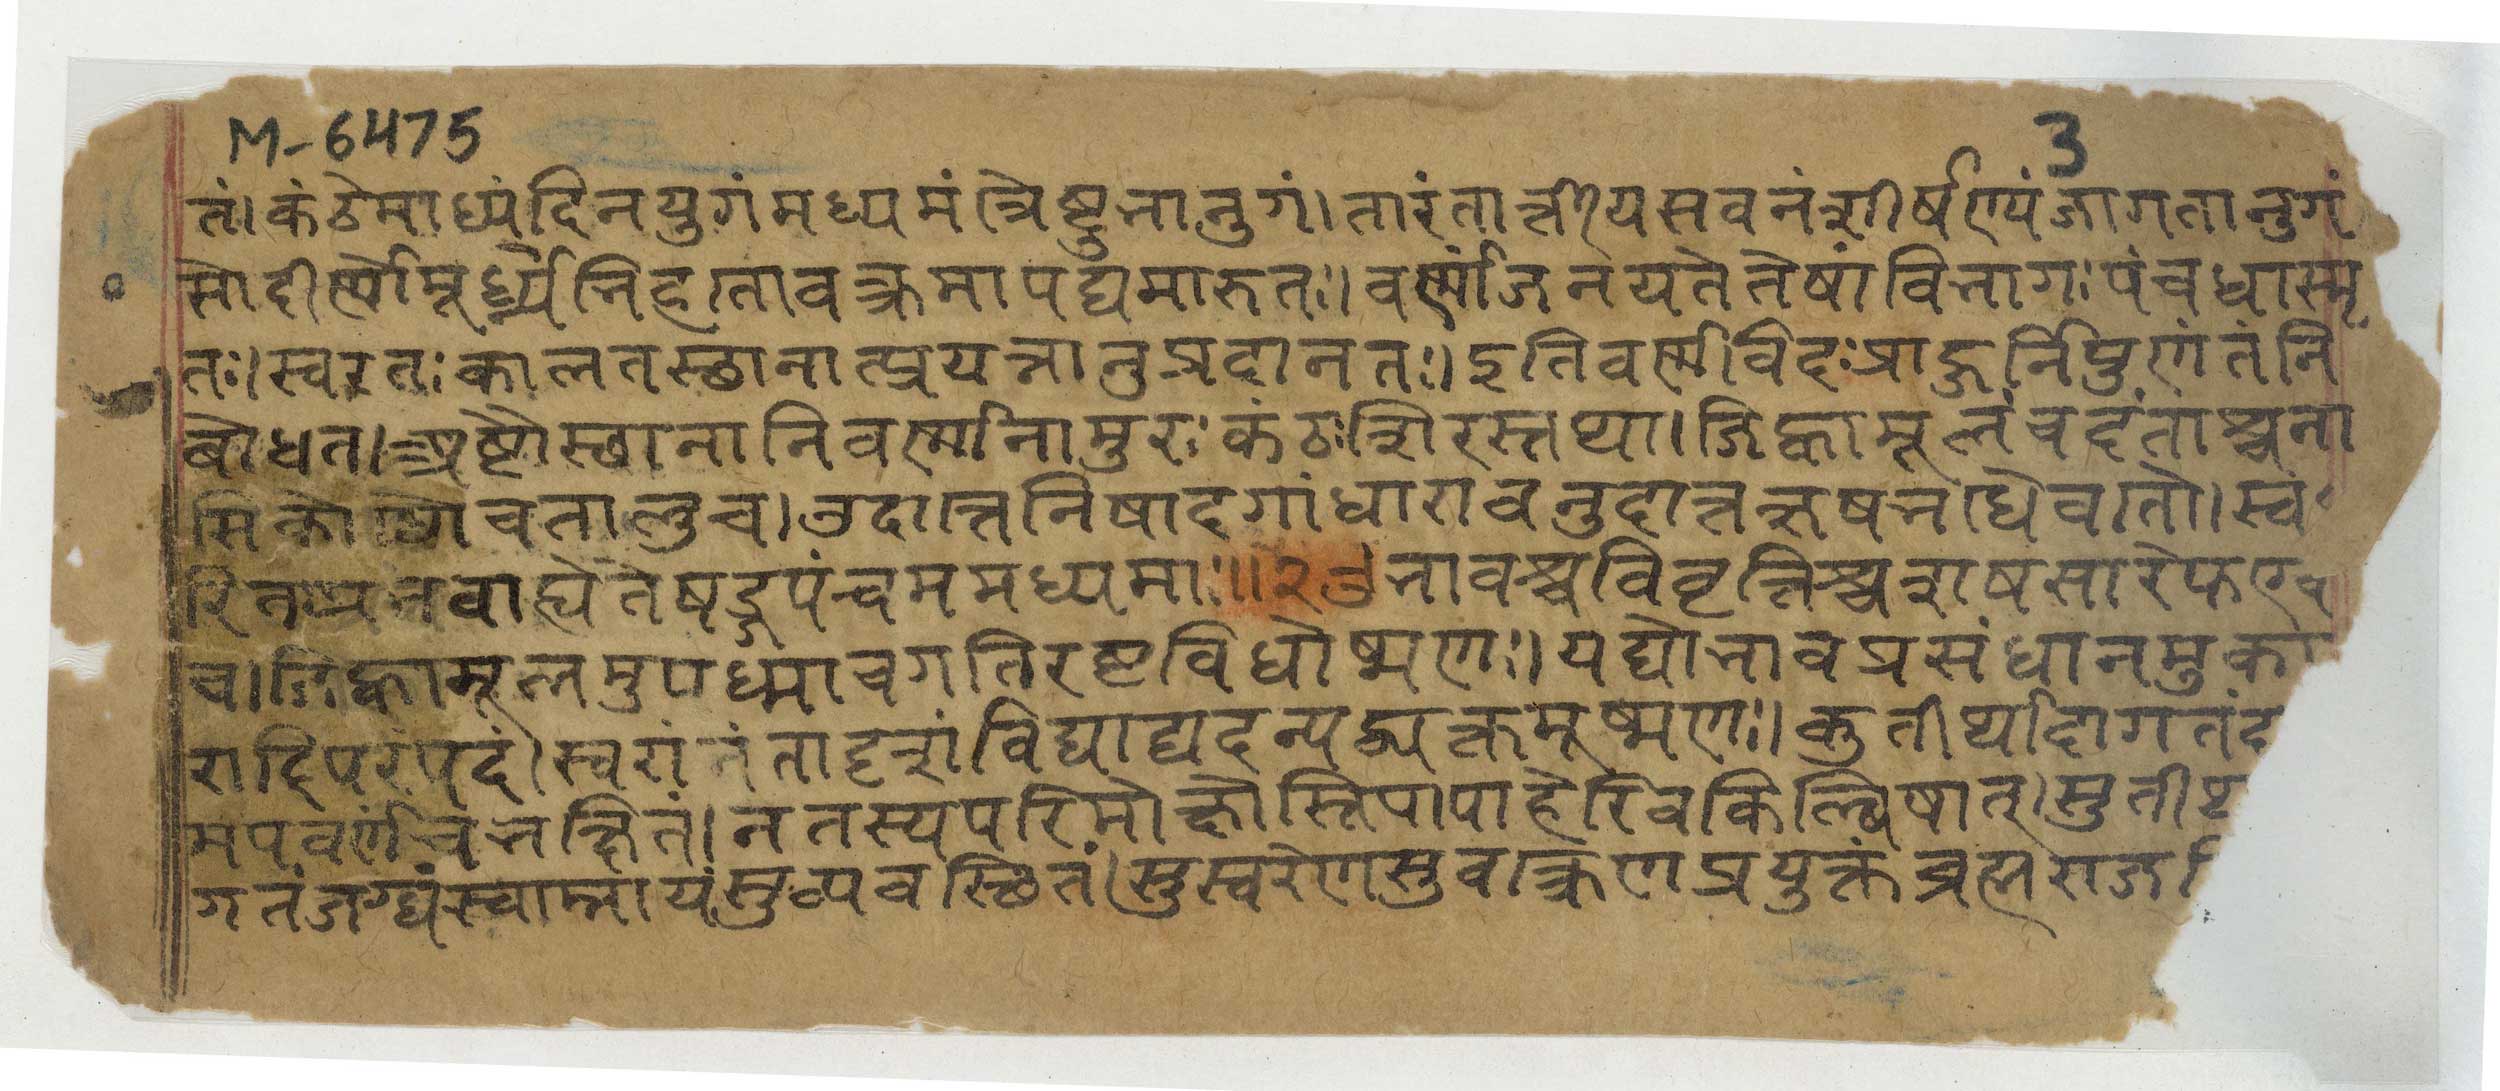 M-6475
3
तं। कंठेमाध्यंदिनयुगंमध्यमंत्रेष्टुभानुगं। तारंतार्त्तीयसवनंशीर्षण्यंजागतानुगं
सोदीर्णोमूर्ध्न्यभिहतोवक्त्रमापद्यमारुतः। वर्णांजनयतेतेषांविभागःपंचधास्मृ
तः। स्वरतःकालतस्छानात्प्रयत्नानुप्रदानतः। इतिवर्णविदःप्राहुर्निपुणंतंनि
बोधत। अष्टौस्छानानिवर्णानामुरःकंठःशिरस्तथा। जिह्वामूलंचदंताश्चना
सिकोष्ठौचतालुच। उदात्तनिषादगांधारावनुदात्तऋषभधैवतौ। स्व
रितप्रभवाह्येतेषड्जपंचममध्यमाः॥२ उभावश्चविवृत्तिश्चशषसारेफएव
च। जिह्वामूलमुपध्माचगतिरष्टविधोष्मणः। यद्योभावप्रसंधानमुका
रादिपरंपदं। स्वरांतंतादृशंविद्याद्यदन्यद्व्यक्तमूष्मणः। कुतीर्थादागतंद
मपवर्णंचभक्षितं। नतस्यपरिमोक्षोस्तिपापाहेरिवकिल्बिषात्। सुतीर्थ
गतंजग्धंस्वाम्नायंसुव्यवस्छितं। सुस्वरेणसुवक्त्रेणप्रयुक्तंब्रह्मराज